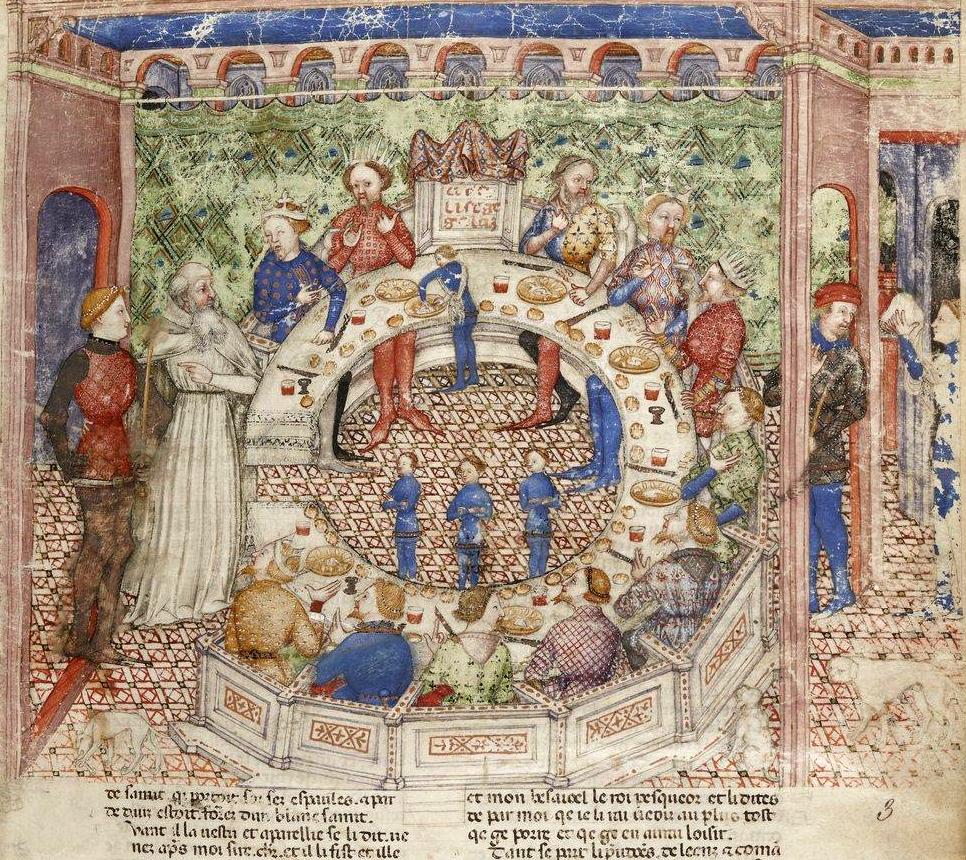 li sege
de samit. qi portoit sor ses espaules. a par
de dan estoit forrez dun blanc samit.
vant il la uestu et aparellie se li dit. ue
nez ap̃s moi sire. chr. et il li fist et ille
et mon besaieol le roi pescheor et li dites
de par moi qe ie li irai ueoir au plus tost
qe ge porai et qe ge en aurai loisir.
Tant se part li de leenz et comā
3